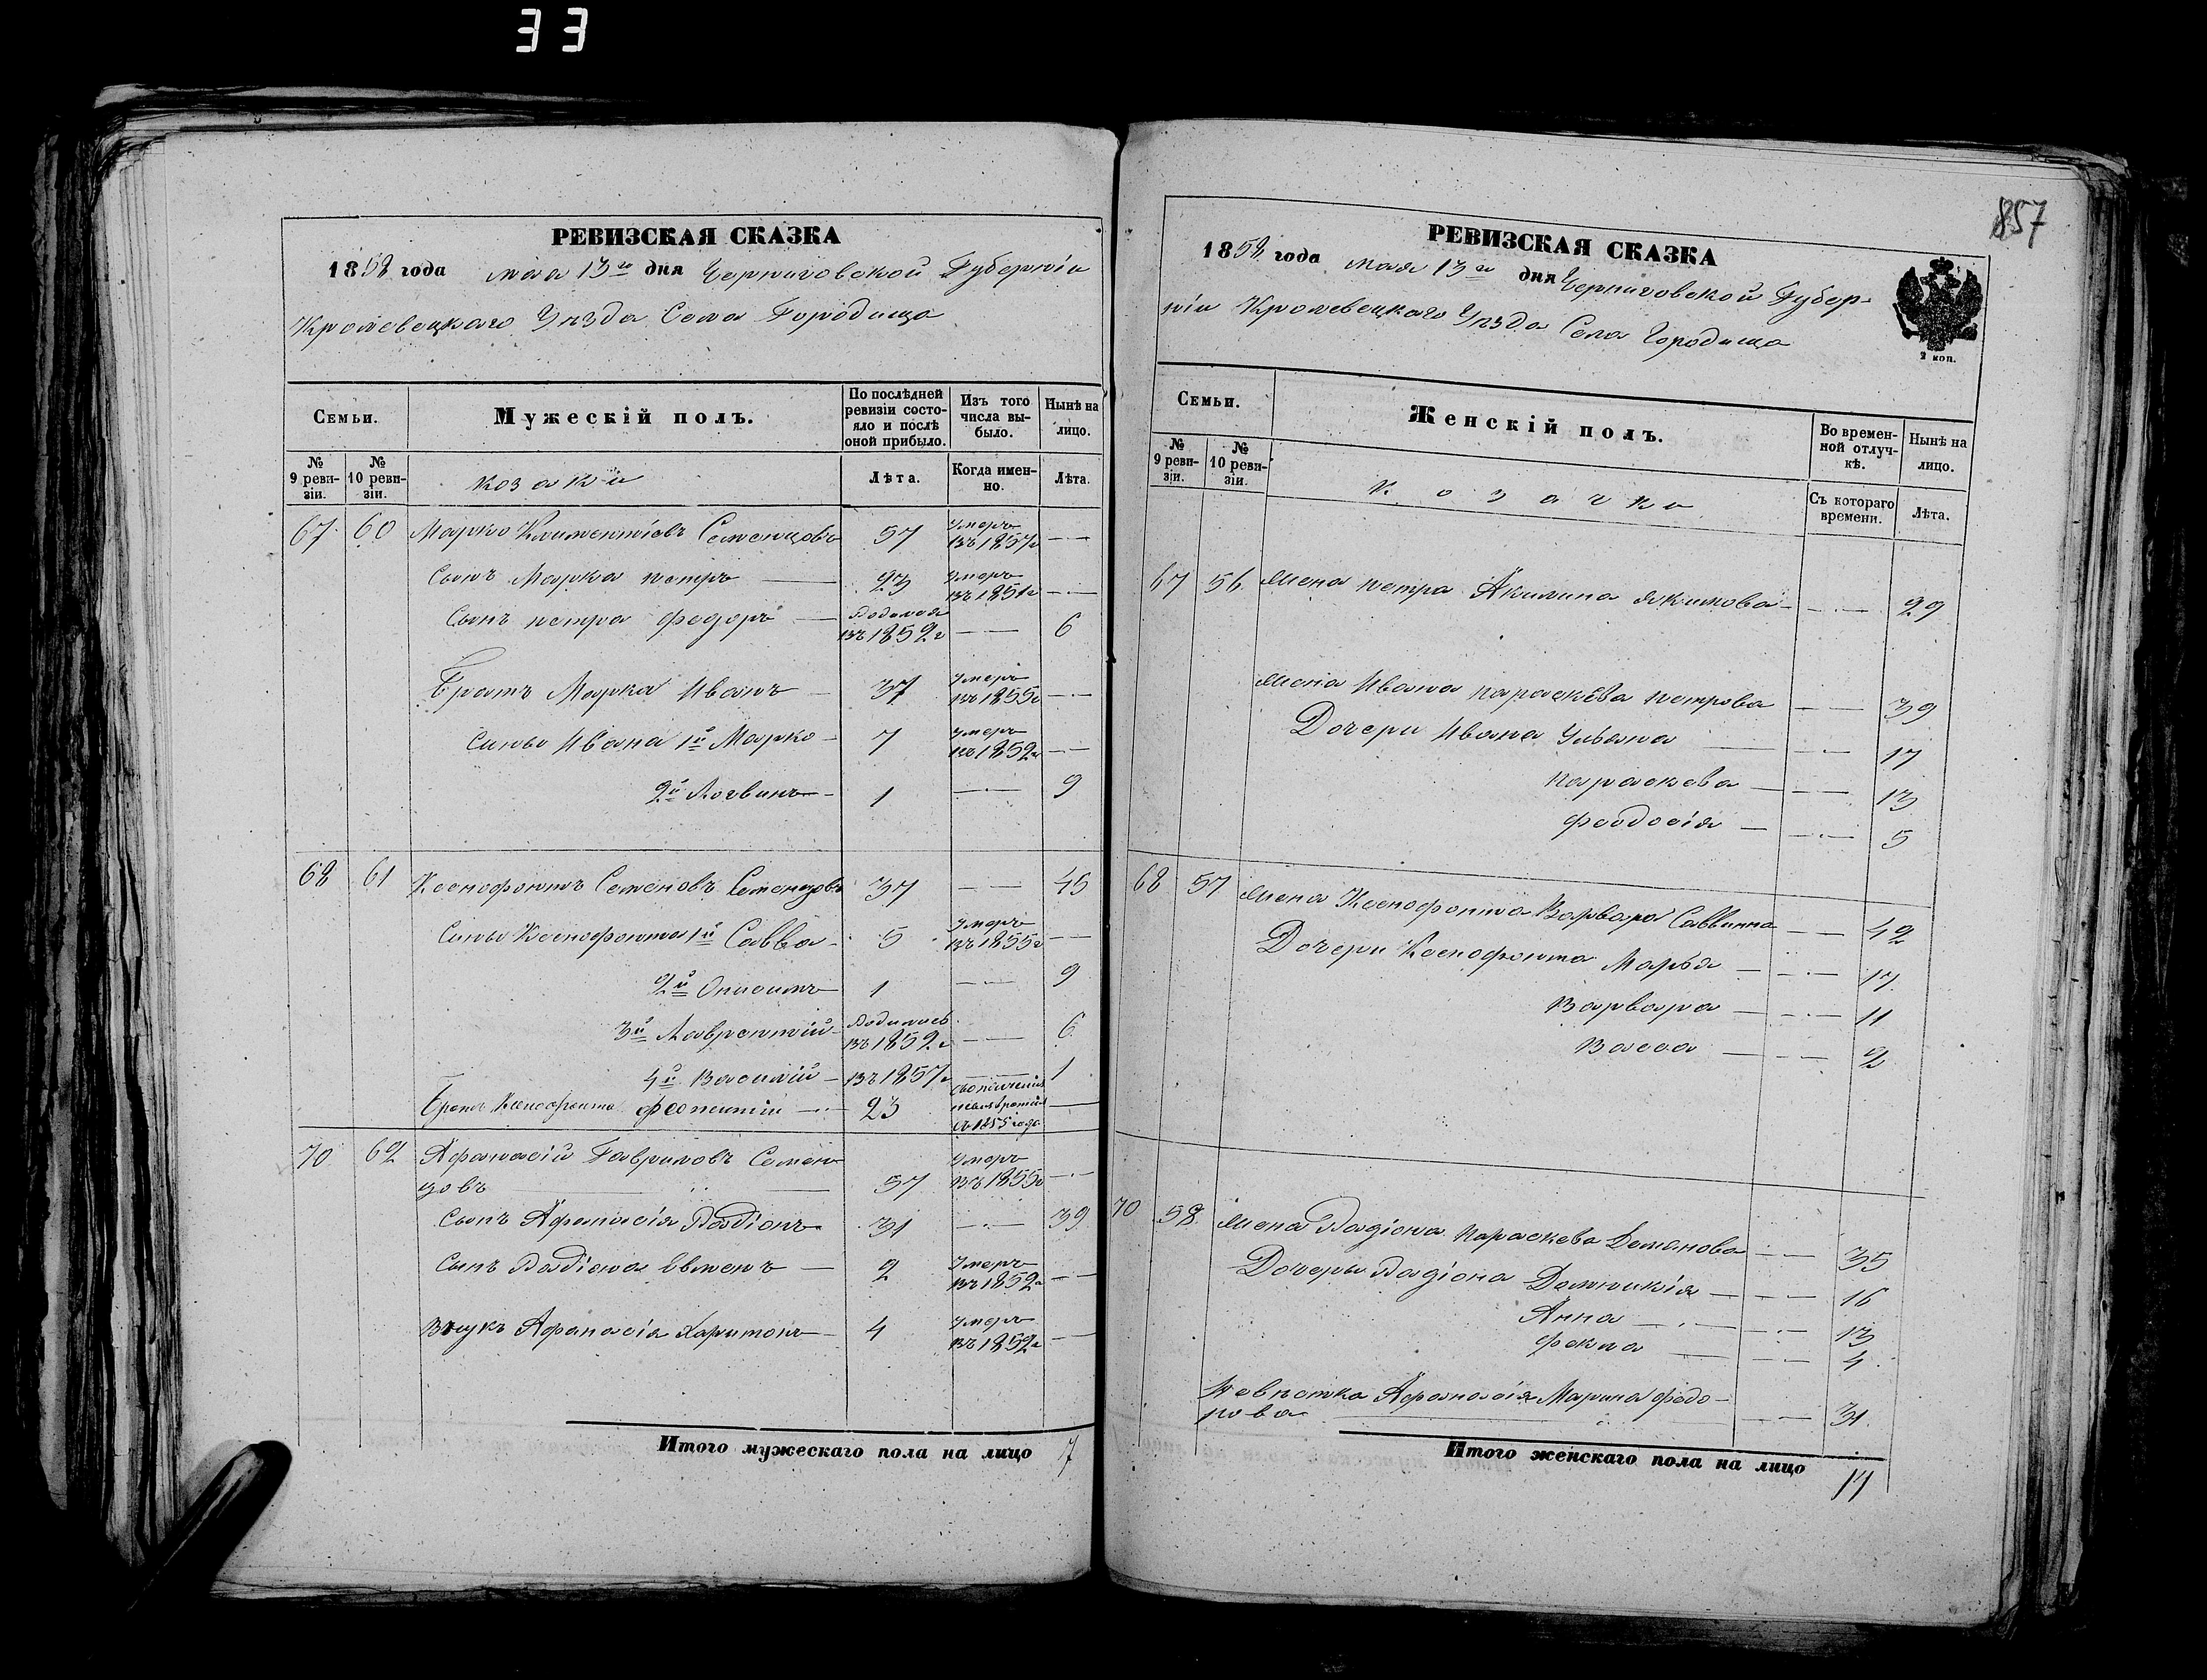 33
857
РЕВИЗСКАЯ СКАЗКА
1858 года мая 13го дня Черниговской Губерніи
Кролевецкаго Уѣзда Села Городища
Семьи.
Мужескій полъ.
По послѣдней ревизіи состояло и послѣ оной прибыло.
Изъ того числа выбыло.
Нынѣ на лицо.
№ 9 ревизіи.
№ 10 ревизіи.
козаки
Лѣта.
Когда именно.
Лѣта.
67 60 Марко Климентіевъ Семенцовъ 57 умеръ въ 1857г — —
Сынъ Марка петръ — 23 умеръ въ 1851г — —
Сынъ петра федоръ — Родился въ 1852г — — 6
Братъ Марка Иванъ — 37 умеръ въ 1855г — —
Сыновья Ивана 1й Марко — 7 умеръ въ 1852г — —
2й Логвинъ — 1 — — 9
68 61 Ксенофонтъ Семеновъ Семенцовъ 37 — — 45
Сыновья Ксенофонта 1й Савва — 5 умеръ въ 1855г — —
2й Онисимъ 1 — — 9
3й Лаврентій — Родился въ 1852г — — 6
4й Василій — въ 1857г — — 1
Братъ Ксенофонта — 23 съ 1855 года —
70 62 Афанасій Гавриловъ Семен
цовъ — — 57 умеръ въ 1855г — —
Сынъ Афанасія Радіонъ 31 — — 39
Сынъ Радіона Евменъ — 2 умеръ въ 1852г — —
Внукъ Афанасія Харитонъ — 4 умеръ въ 1852г —
Итого мужескаго пола на лицо 7
РЕВИЗСКАЯ СКАЗКА
1858 года мая 13го дня Черниговской Губер-
ніи Кролевецкаго Уѣзда Села Городища
2 коп.
Семьи.
Женскій полъ.
Во временной отлучкѣ.
Нынѣ на лицо.
№ 9 ревизіи.
№ 10 ревизіи.
козачки
Съ котораго времени.
Лѣта.
67 56. Жена петра Акилина якимова — — — 29
Жена Ивана параскева петрова — — 39
Дочери Ивана Ульяна — — 17
параскева — — — 13
феодосія — — — 5
68 57 Жена Ксенофонта Варвара Саввина — — 42
Дочери Ксенофонта Марья — — — 17
Варвара — — — 11
Васса — — — 2
70 58. Жена Радіона параскева Демянова — — 35
Дочеры Радіона Домникія — — — 16
Анна — — — 13
фекла — — — 4
Невѣстка Афанасія Марина федо-
рова — — — 31.
Итого женскаго пола на лицо 14